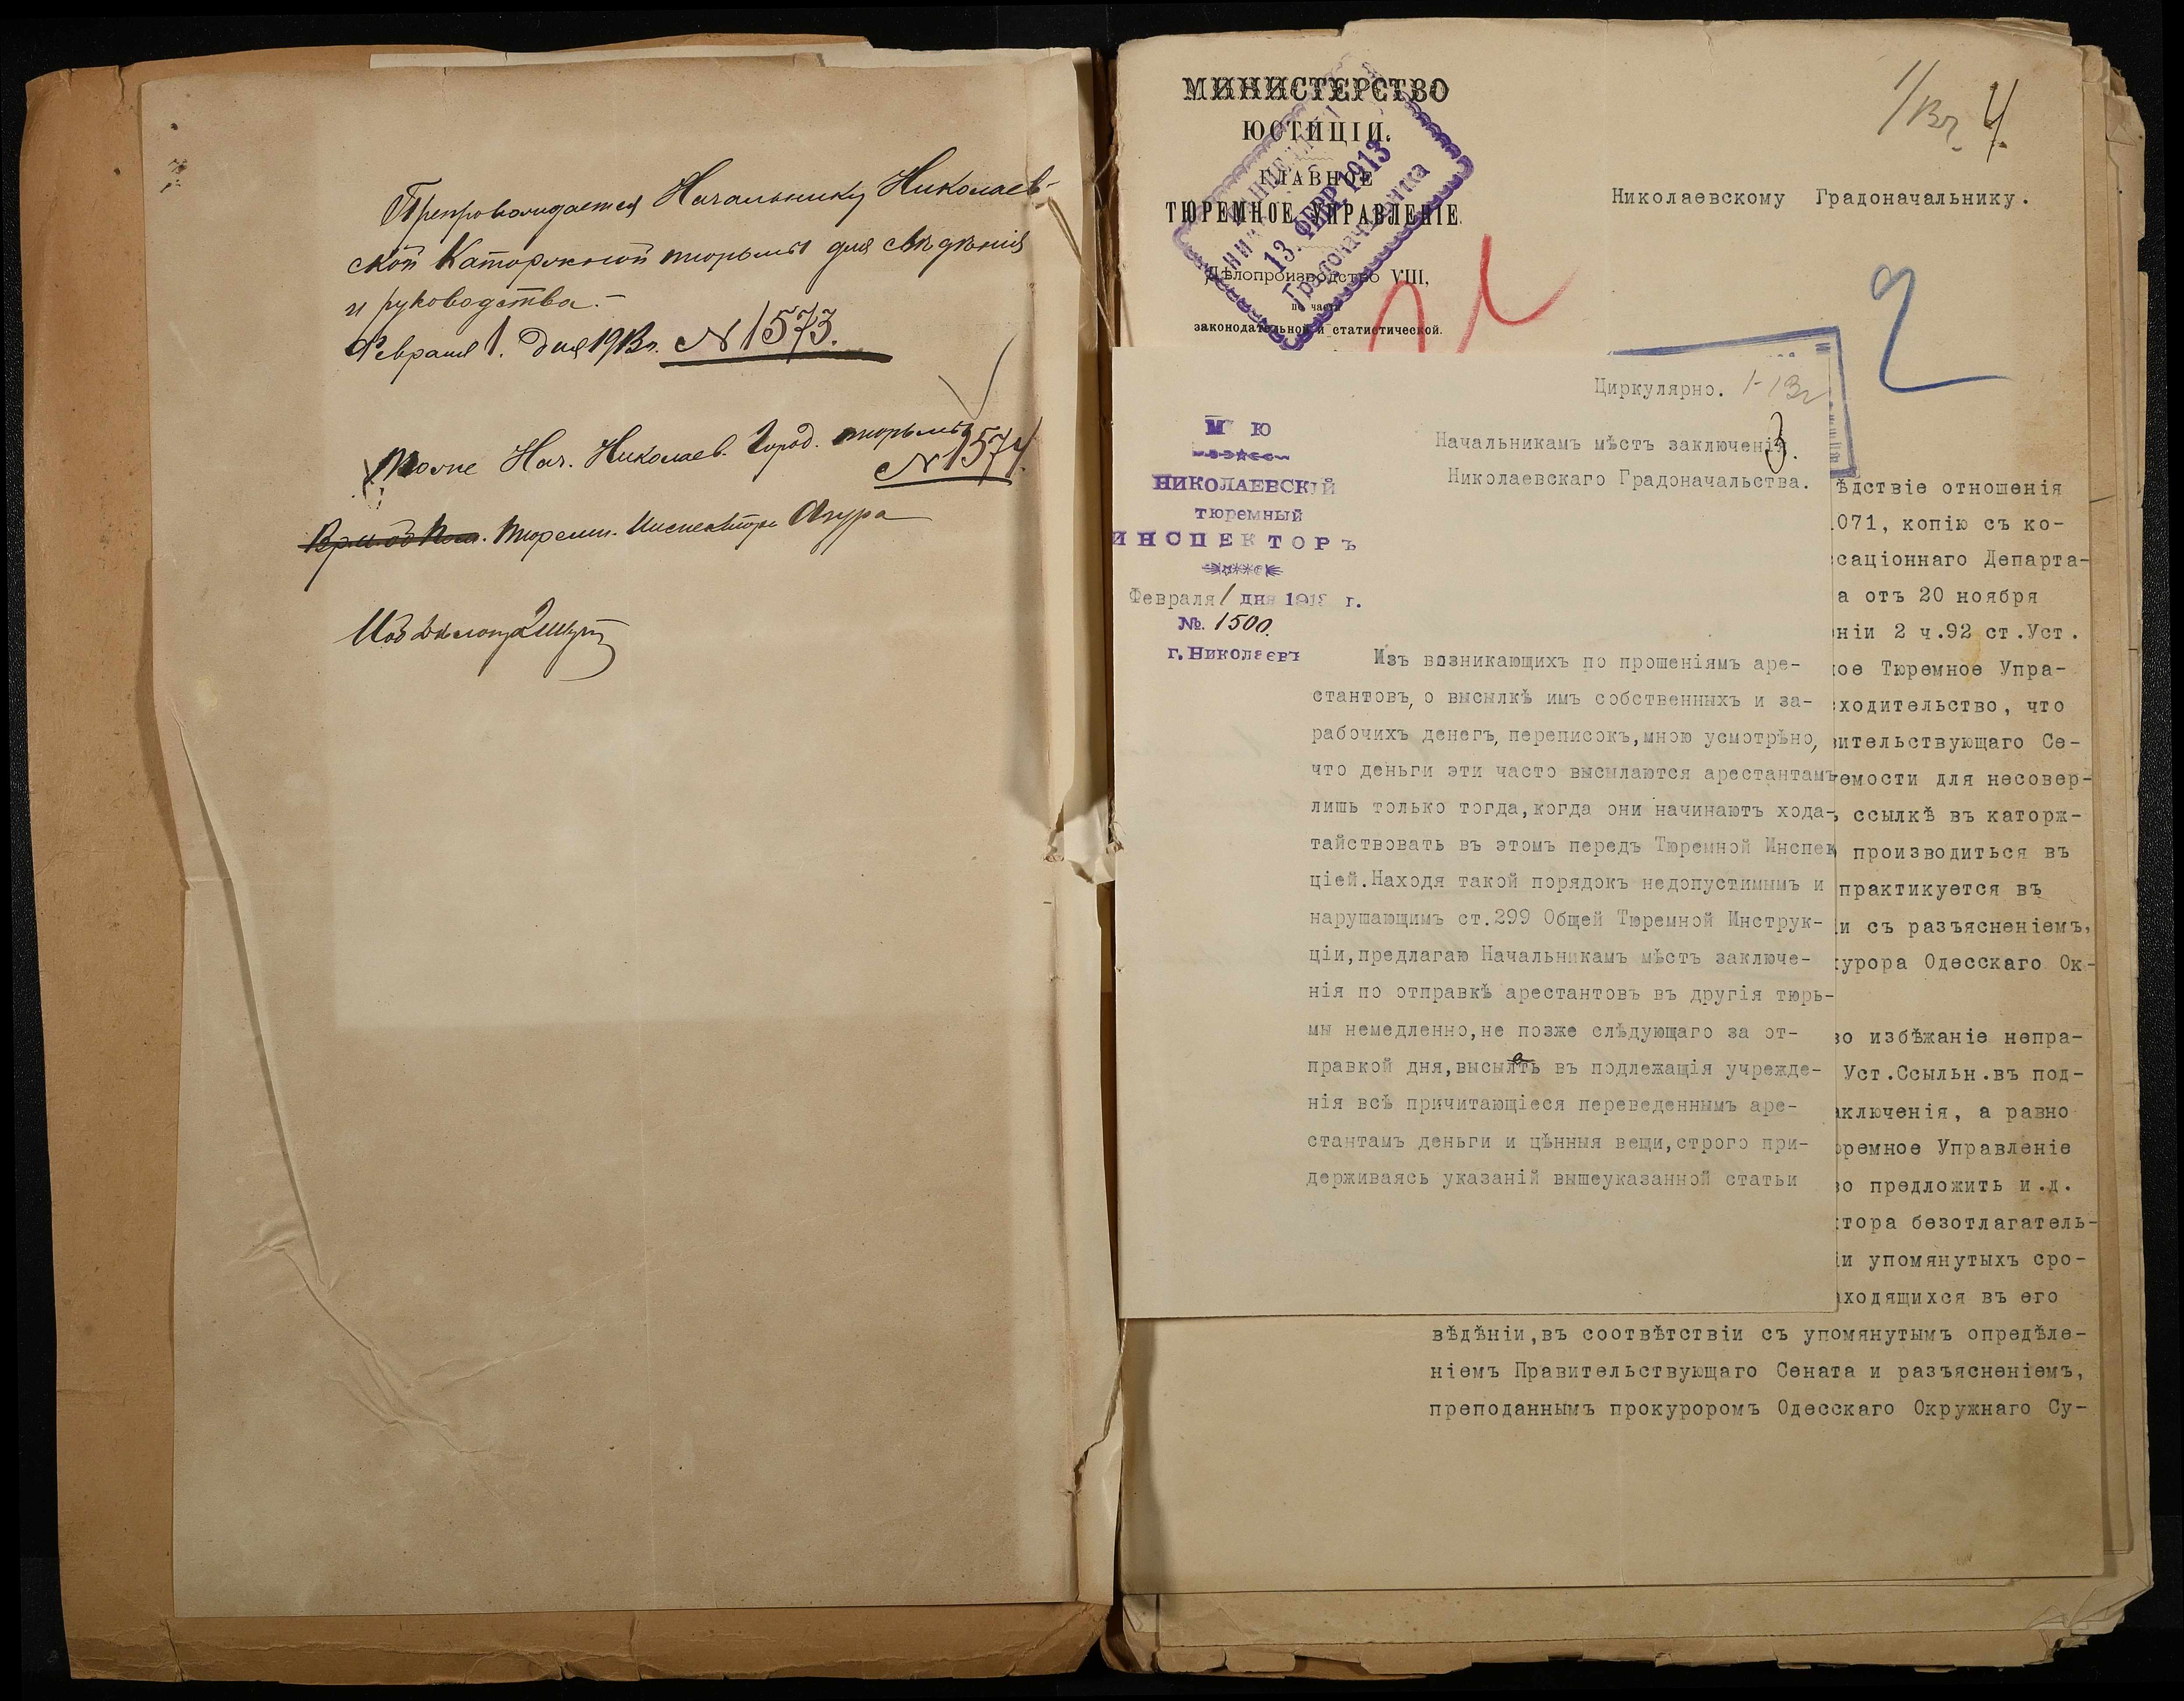 Препровождается Начальнику Николаев-
ской Каторжной тюрьмы для свѣдѣнія
и руководства.-
Февраля 1. дня 1913г. N 1573.
Тоже Нач. Николаев. Город. тюрьмы
N 1574.
Тюремн. Инспектора
МИНИСТЕРСТВО
ЮСТИЦІИ.
ГЛАВНОЕ
ТЮРЕМНОЕ УПРАВЛЕНІЕ.
Дѣлопроизводство VIII,
по части
законодательной и статистической.
13. ФЕВР 1913
Градоначальника
4.
Николаевскому Градоначальнику.
2
Циркулярно. 1-13г
3
Начальникамъ мѣстъ заключенія.
Николаевскаго Градоначальства.
М Ю
НИКОЛАЕВСКІЙ
тюремный
ИНСПЕКТОРЪ
Февраля 1 дня 1913 г.
№. 1500.
г. Николаевъ
Изъ возникающихъ по прошеніямъ аре-
стантовъ, о высылкѣ имъ собственныхъ и за-
рабочихъ денегъ, переписокъ,мною усмотрѣно,
что деньги эти часто высылаются арестантамъ
лишь только тогда,когда они начинаютъ хода-
тайствовать въ этомъ передъ Тюремной Инспек
ціей.Находя такой порядокъ недопустимымъ и
нарушающимъ ст.299 Общей Тюремной Инструк-
ціи,предлагаю Начальникамъ мѣстъ заключе-
нія по отправкѣ арестантовъ въ другія тюрь-
мы немедленно,не позже слѣдующаго за от-
правкой дня,высылать въ подлежащія учрежде-
нія всѣ причитающіеся переведеннымъ аре-
стантамъ деньги и цѣнныя вещи,строго при-
держиваясь указаній вышеуказанной статьи
ѣдствіе отношенія
071, копію съ ко-
саціоннаго Департа-
а отъ 20 ноября
ніи 2 ч.92 ст.Уст.
ое Тюремное Упра-
ходительство, что
вительствующаго Се-
емости для несовер-
ссылкѣ въ каторж-
производиться въ
практикуется въ
и съ разъясненіемъ,
урора Одесскаго Ок-
во избѣжаніе непра-
Уст.Ссыльн.въ под-
аключенія, а равно
ремное Управленіе
о предложить и.д.
тора безотлагатель-
и упомянутыхъ сро-
аходящихся въ его
вѣдѣніи,въ соотвѣтствіи съ упомянутымъ опредѣле-
ніемъ Правительствующаго Сената и разъясненіемъ,
преподаннымъ прокуроромъ Одесскаго Окружнаго Су-